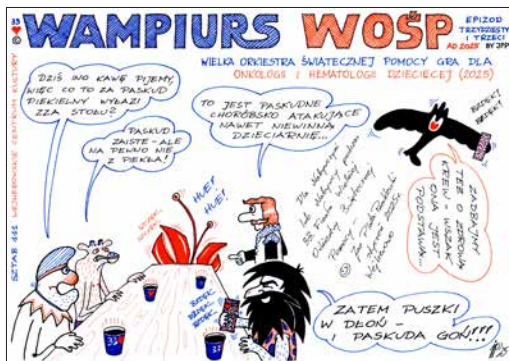 33
©
WAMPIURS WOŚP
EPIZOD
TRZYDZIESTY
I TRZECI
AD 2025 BY JPP
WIELKA ORKIESTRA ŚWIĄTECZNEJ POMOCY GRA DLA
ONKOLOGII I HEMATOLOGII DZIECIĘCEJ (2025)
SZTAB 111 WEJHEROWSKIE CENTRUM KULTURY
DZIŚ INO KAWĘ PIJEMY,
WIĘC CO TO ZA PASKUD
PIEKIELNY WYŁAZI
ZZA STOŁU?
PASKUD
ZAISTE - ALE
NA PEWNO NIE
Z PIEKŁA!
TO JEST PASKUDNE
CHORÓBSKO ATAKUJĄCE
NAWET NIEWINNĄ
DZIECIARNIĘ...
BRZDĘK!
BRZDĘK!
ZADBAJMY
TEŻ O ZDROWĄ
KREW - WSZAK
ONA JEST
PODSTAWĄ...
HUE!
HUE!
Dla
33 Finału Wielkiej
Orkiestry Świątecznej
Pomocy
2025r.
Wejherowo
BRZDĘK...
BRZDĘK...
BRZDĘK...
33
ZATEM PUSZKI
W DŁOŃ -
I PASKUDA GOŃ!!!